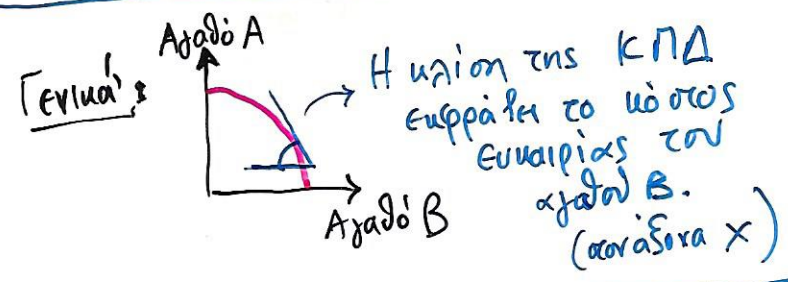 Γενικά:
Αγαθό Α
Αγαθό Β
Η κλίση της ΚΠΔ
εκφράζει το κόστος
ευκαιρίας του
αγαθού Β.
(στον άξονα x)